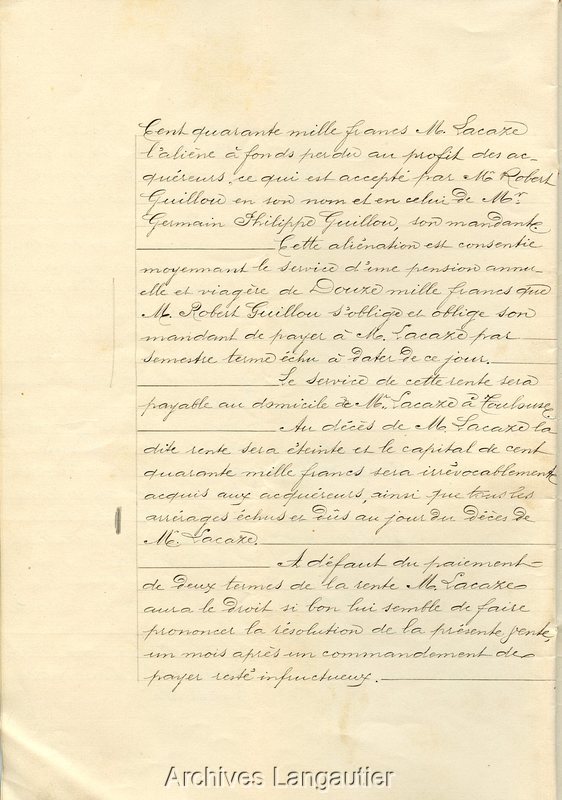 Cent quarante mille francs M. Lacaze
l'aliène à fonds perdu au profit des ac-
quéreurs, ce qui est accepté par M. Robert
Guillou en son nom et en celui de Mr.
Germain Philippe Guillou, son mandant.
Cette aliénation est consentie
moyennant le service d'une pension annu-
elle et viagère de Douze mille francs que
M. Robert Guillou s'oblige et oblige son
mandant de payer à M. Lacaze par
semestre terme échu à dater de ce jour.
Le service de cette rente sera
payable au domicile de Mr. Lacaze à Toulouse.
Au décès de M. Lacaze la
dite rente sera éteinte et le capital de cent
quarante mille francs sera irrévocablement
acquis aux acquéreurs, ainsi que tous les
arrérages échus et dûs au jour du décès de
M. Lacaze.
A défaut du paiement
de deux termes de la rente M. Lacaze
aura le droit si bon lui semble de faire
prononcer la résolution de la présente vente,
un mois après un commandement de
payer resté infructueux.
Archives Langautier